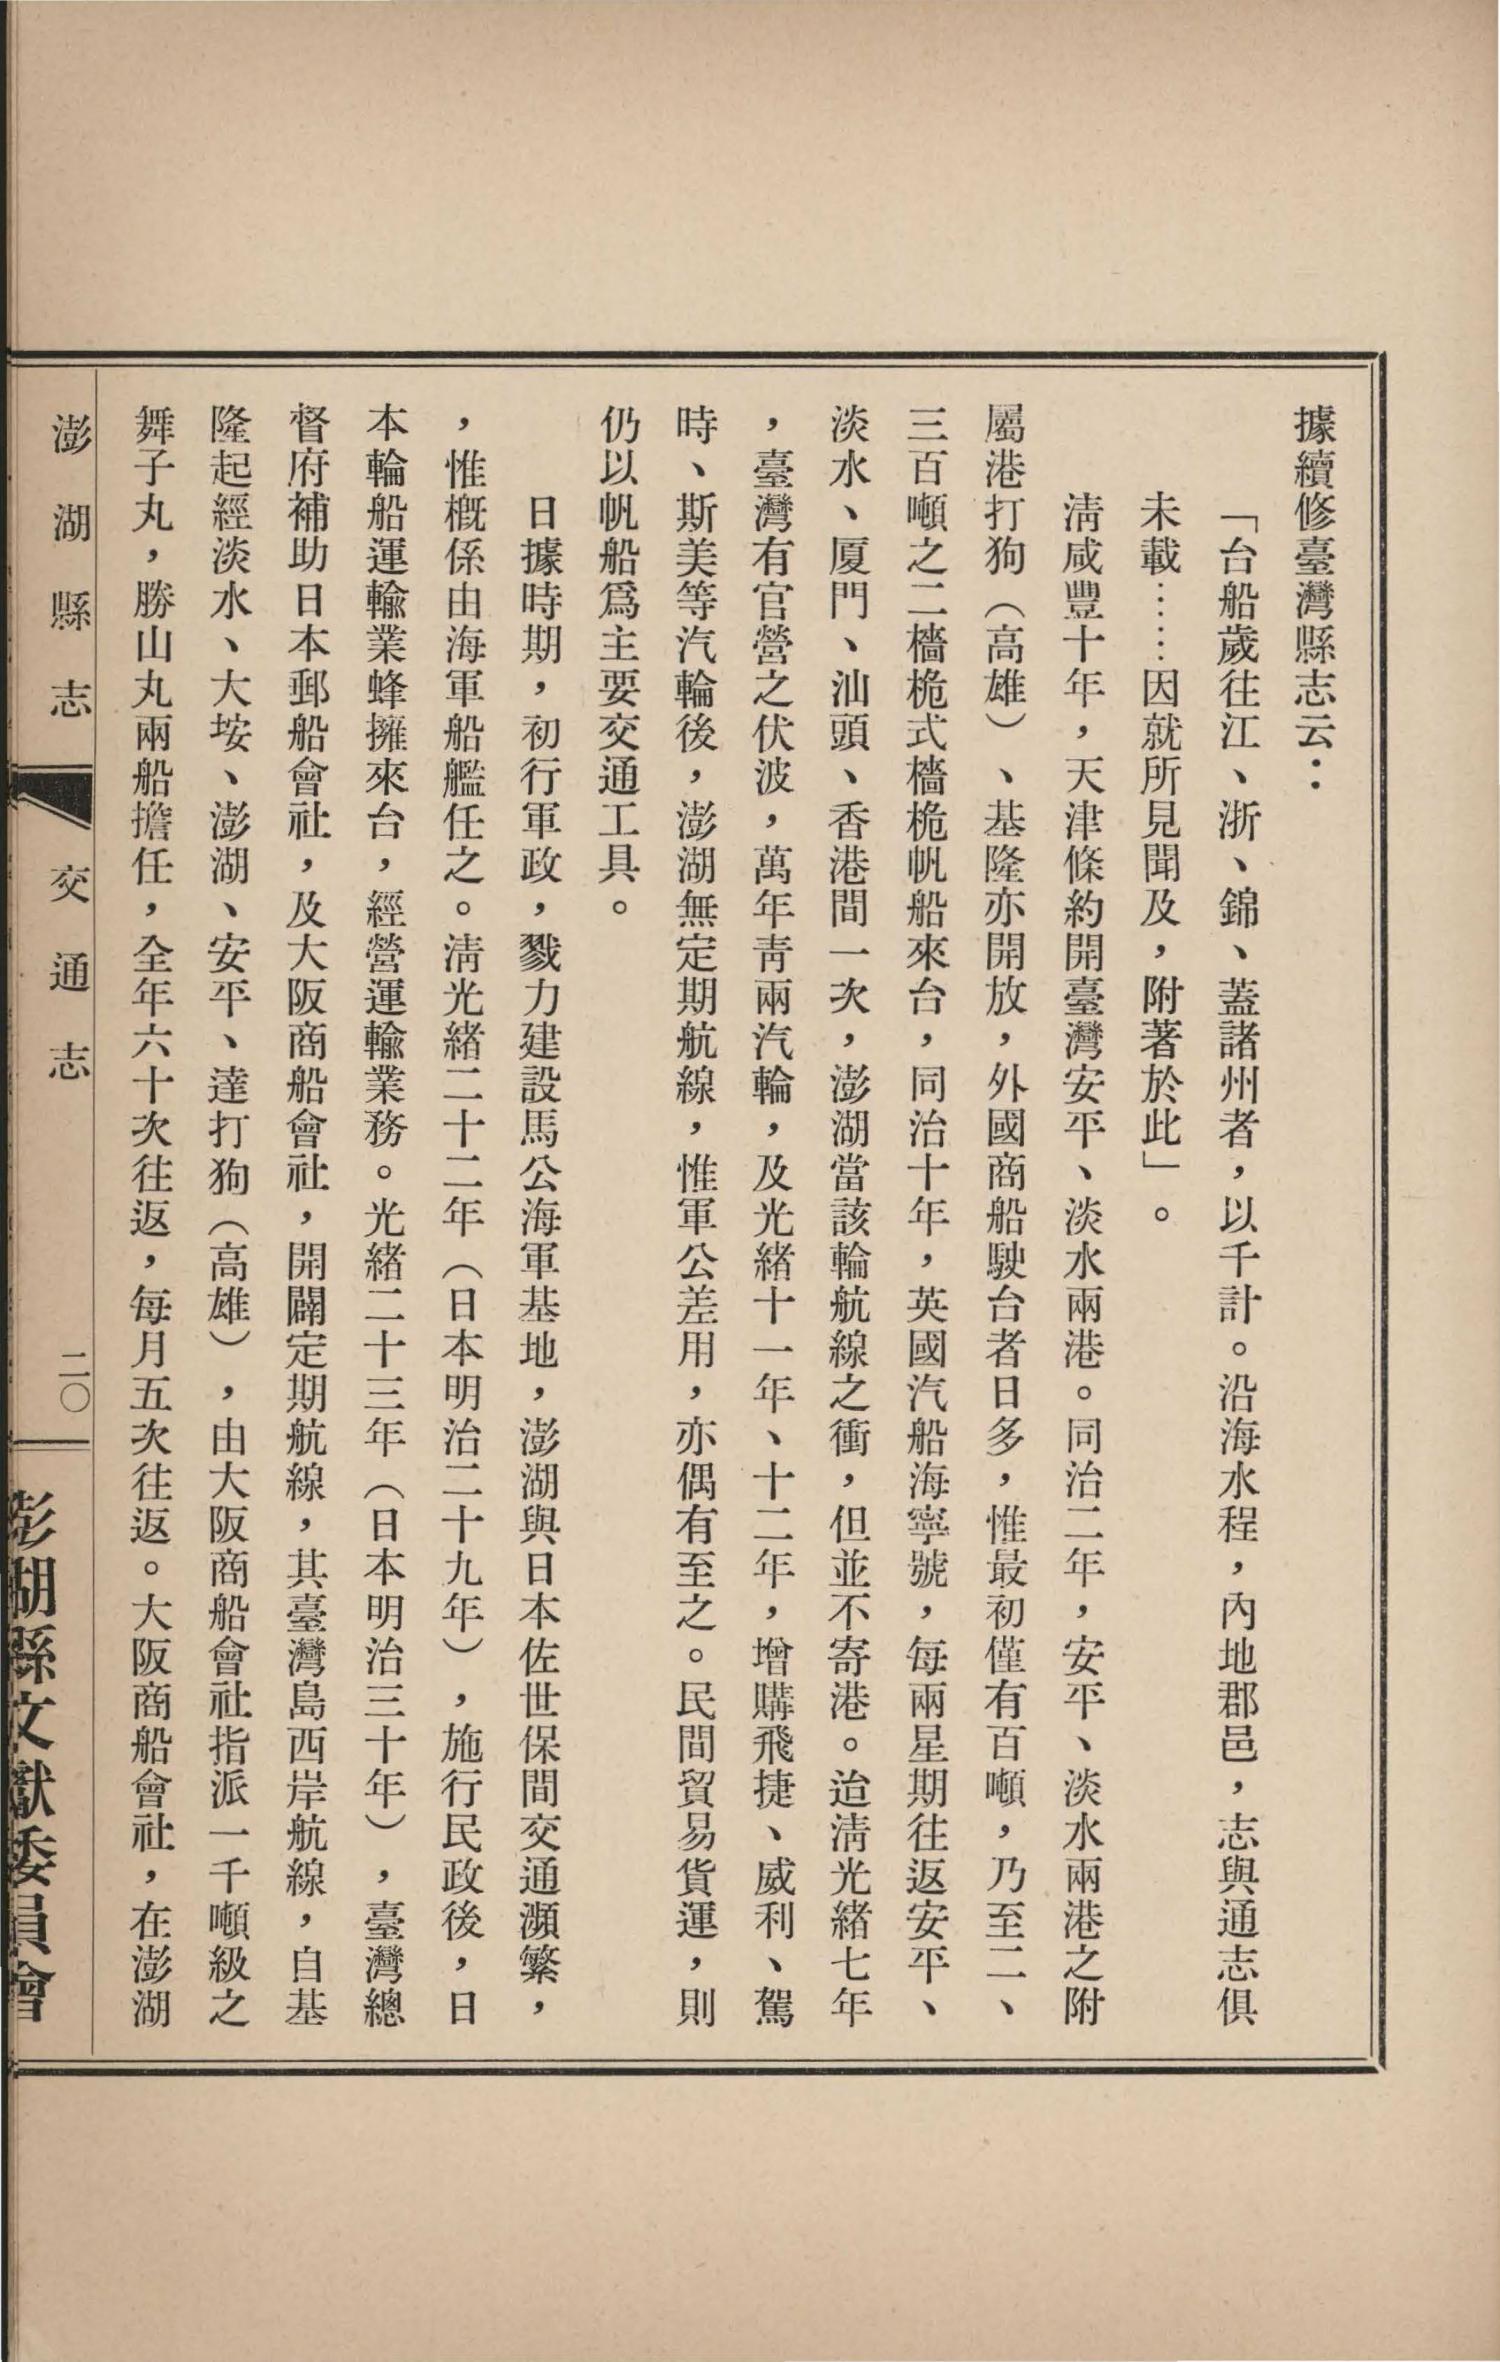 據續修臺灣縣志云：
「台船歲往江、浙、錦、蓋諸州者，以千計。沿海水程，內地郡邑，志與通志俱
未載……因就所見聞及，附著於此」。
淸咸豐十年，天津條約開臺灣安平、淡水兩港。同治二年，安平、淡水兩港之附
屬港打狗（高雄）、基隆亦開放，外國商船駛台者日多，惟最初僅有百噸，乃至二、
三百噸之二檣桅式檣桅帆船來台，同治十年，英國汽船海寧號，每兩星期往返安平、
淡水、厦門、汕頭、香港間一次，澎湖當該輪航線之衝，但並不寄港。迨淸光緒七年
，臺灣有官營之伏波，萬年靑兩汽輪，及光緒十一年、十二年，增購飛捷、威利、駕
時、斯美等汽輪後，澎湖無定期航線，惟軍公差用，亦偶有至之。民間貿易貨運，則
仍以帆船爲主要交通工具。
日據時期，初行軍政，戮力建設馬公海軍基地，澎湖與日本佐世保間交通瀕繁，
，惟概係由海軍船艦任之。淸光緒二十二年（日本明治二十九年），施行民政後，日
本輪船運輸業蜂擁來台，經營運輸業務。光緒二十三年（日本明治三十年），臺灣總
督府補助日本郵船會社，及大阪商船會社，開闢定期航線，其臺灣島西岸航線，自基
隆起經淡水、大垵、澎湖、安平、達打狗（高雄），由大阪商船會社指派一千噸級之
舞子丸，勝山丸兩船擔任，全年六十次往返，每月五次往返。大阪商船會社，在澎湖
澎湖縣志　交通志　二〇
澎湖縣文獻委員會